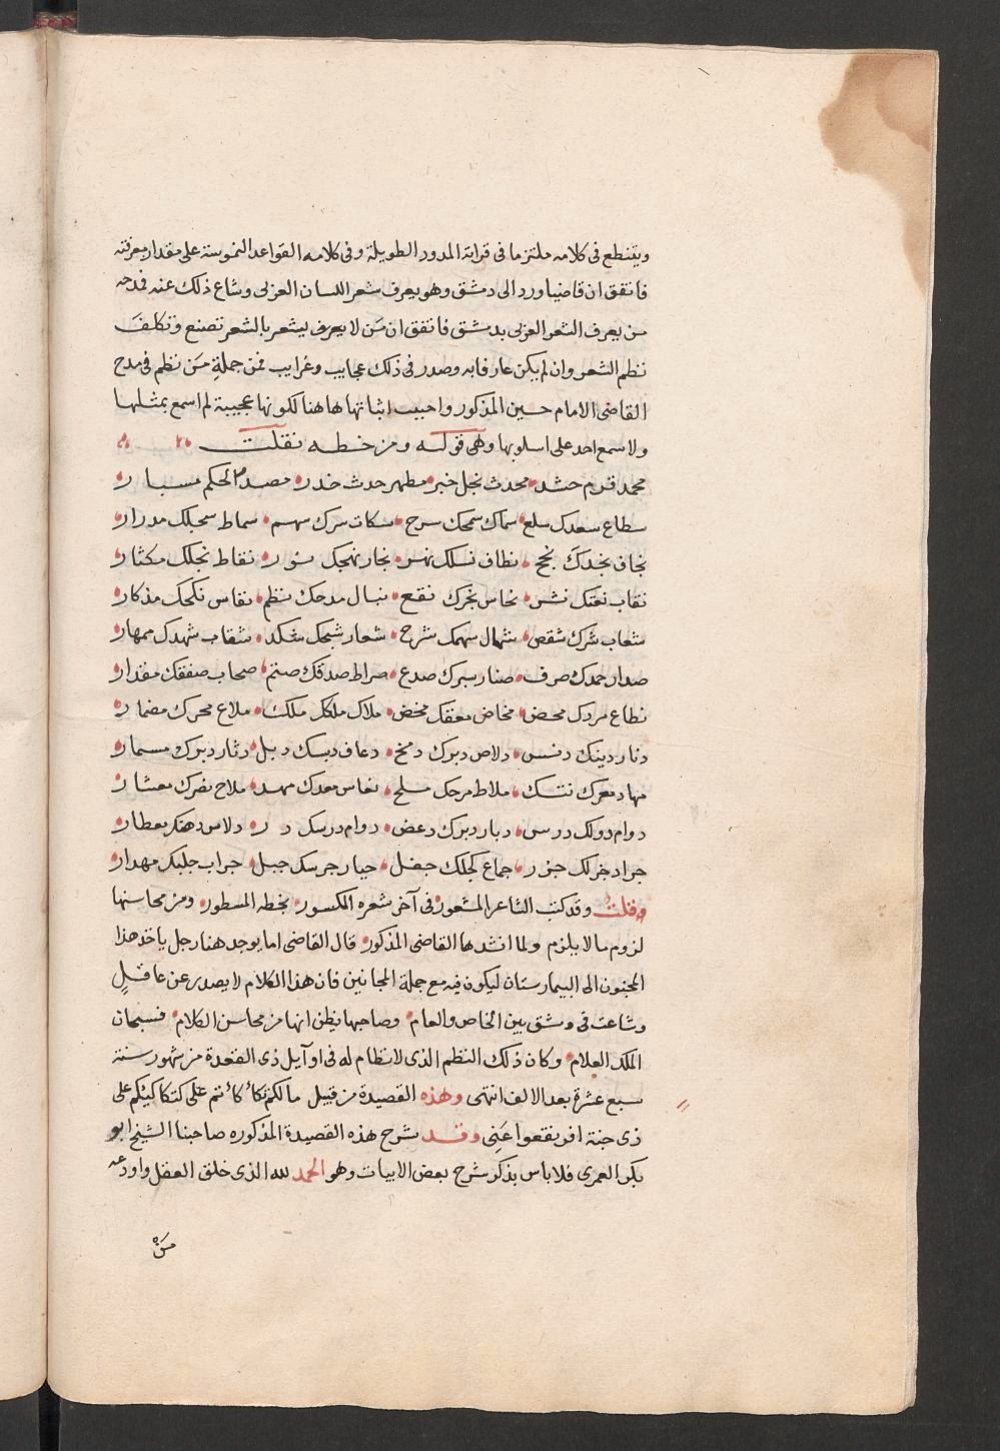 ويتنطع فى كلامه ملتزما فى قراءة المدود الطويلة وفى كلامه القواعد النحوية على مقدار معرفته
فاتفق ان قاضيا ورد الى دمشق وهو يعرف شعر اللسان العربى وشاع ذلك عنه فمدحه
من يعرف الشعر العربى بدمشق فاتفق ان من لا يعرف ليشعر بالشعر تصنع وتكلف
نظم الشعر وان لم يكن عارفا به وصدر فى ذلك عجايب وغرايب فمن جملة من نظم فى مدح
القاضى الامام حسين المذكور واحببت اثباتها هاهنا لكونها عجيبة لم اسمع بمثلها
ولا سمع احد على اسلوبها وهى قوله ومن خطه نقلت
محمد قرم حشد محدث نجل خبر مطهر حدث خدر مصدم الحكم مسبار
سطاع سعدك سلع سماك سمحك سرح سكات سرك سهم سماط سجلك مدرار
نجاف نجدك نجح نطاف نسلك نهس نجار نهجك نور نقاط نجلك مكثار
نقاب نعتك نشر نحاس نجرك نقع نبال مدحك نظم نقاس نكحك مذكار
شعاب شرك شقص شمال سهمك شرح شعار شبحك شكد شقاب شهدك ممهار
صدار حمدك صرف صنار سبرك صدع صراط صدقك صتم صحاب صفقك مقدار
نطاع مردك محض مخاض معقك مخض ملاك ملكك ملكت ملاع محرك مضمار
دثار دينك دنس دلاص دبرك دمخ دعاف دبسك دبل دثار دبرك مسمار
مهاد معرك نتسك ملاط مرحك مسلح نعاس معدك مهد ملاح نضرك معشار
دوام دولك درس دبار دبرك دعض دوام درسك در دلاس دهنك معطار
جراد جزلك جزر جماع كجلك جفل جيار جرسك جبل جراب جلبك مهدار
وقلت وقد كتب الشاعر المشعور فى آخر شعره المكسور بخطه المسطور ومن محاسنها
لزوم ما لا يلزم ولما انشدها القاضى المذكور قال القاضى اما يوجد هنا رجل ياخذ هذا
المجنون الى البيمارستان ليكون فيه مع جملة المجانين فان هذا الكلام لا يصدر عن عاقل
وشاعت فى دمشق بين الخاص والعام وصاحبها يظن انها من محاسن الكلام فسبحان
الملك العلام وكان ذلك النظم الذى لا نظام له فى اوآيل ذى القعدة من شهور سنة
سبع عشرة بعد الالف انتهى وهذه القصيدة من قبيل مالكم تكأكأتم على كتكأكئكم على
ذى جنة افرنقعوا عنى وقد شرح هذه القصيدة المذكوره صاحبنا الشيخ ابو
بكر العمرى فلا باس بذكر شرح بعض الابيات وهو الحمد لله الذى خلق العقل واودعه